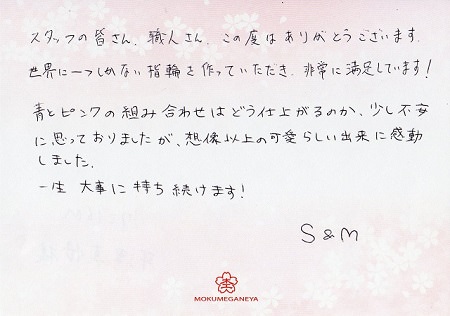 スタッフの皆さん、職人さん、この度はありがとうございます。
世界に一つしかない指輪を作っていただき、非常に満足しています!
青とピンクの組み合わせはどう仕上がるのか、少し不安
に思っておりましたが、想像以上の可愛らしい出来に感動
しました。
一生 大事に持ち続けます!
S&M
MOKUMEGANEYA